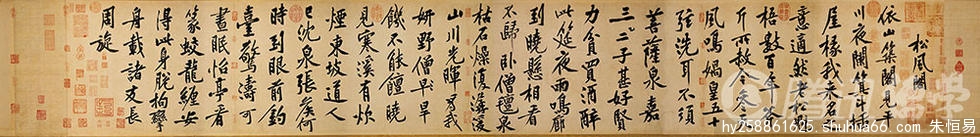 松風閣
依山築閣見平
川夜闌箕斗插
屋椽我來名之
意適然老松魁
梧數百年斧
斤所赦今參天
風鳴媧皇五十
弦洗耳不須
菩薩泉嘉
二三子甚好賢
力貧買酒醉
此筵夜雨鳴廊
到曉懸相看
不歸臥僧氈泉
枯石燥復潺湲
山川光暉為我
妍野僧旱
飢不能饘曉
見寒溪有炊
煙東坡道人
已沈泉張侯何
時到眼前釣
臺驚濤可
晝眠怡亭看
篆蛟龍纏安
得此身脫拘攣
舟載諸友長
周旋
hy258861625.shuhua66.com 朱恒易